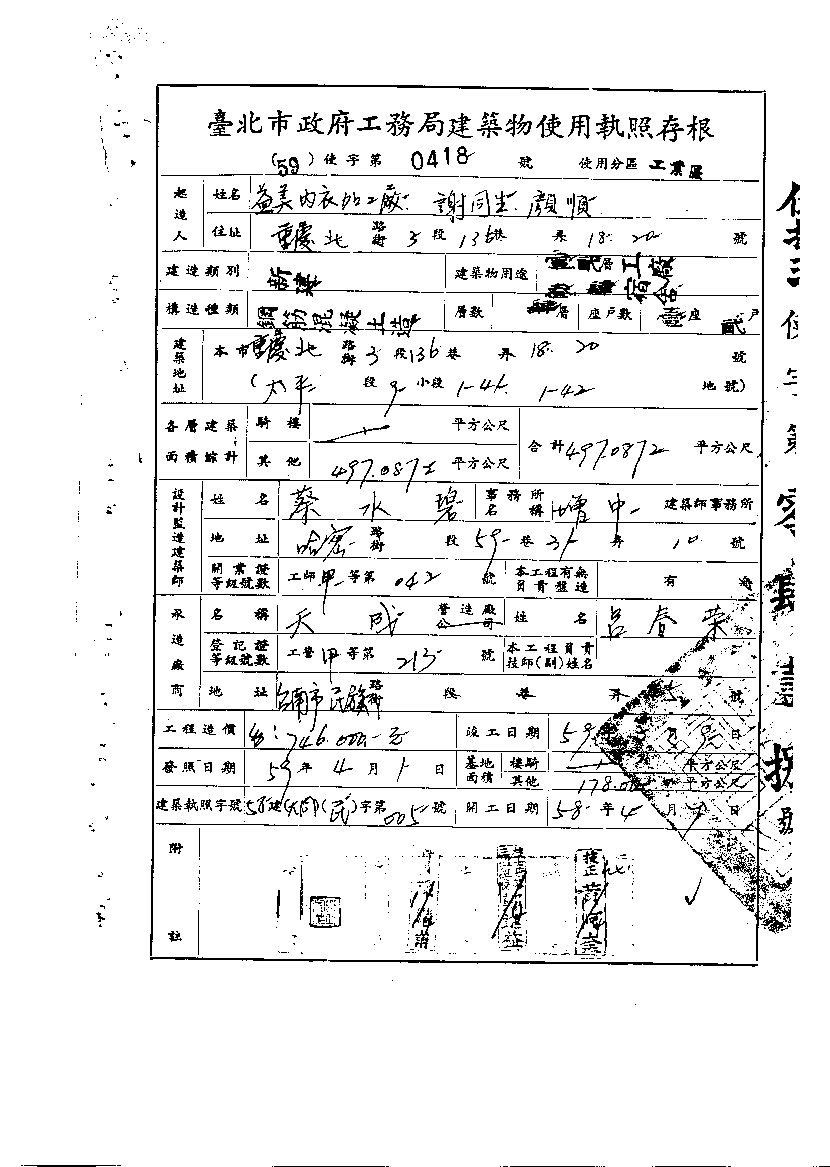 臺北市政府工務局建築物使用執照存根
(59)使字第 0418 號 使用分區 工業區
起造人 姓名 益美內衣加工廠 謝同 顏順
住址 重慶北 路街 3 段 136 巷 弄 18. 20 號
建造類別 新建 建築物用途 層 工廠 宿舍
構造種類 鋼筋混凝土造 層數 層 座戶數 壹座 貳戶
建築地址 本市 重慶北 路街 3 段 136 巷 弄 18. 20 號
(太平 段 2 小段 1-41. 1-42 地號)
各層建築面積綜計 騎樓 平方公尺 合計 497.0872 平方公尺
其他 497.0872 平方公尺
設計監造建築師 姓名 蔡水碧 事務所名稱 增中 建築師事務所
地址 哈密 路街 段 59 巷 31 弄 10 號
開業證等級號數 工師 甲 等第 042 號 本工程有無負責監造 有
承造廠商 名稱 天成 營造廠公司 姓名 呂春榮
登記證等級號數 工營 甲 等第 213 號 本工程負責技師(副)姓名
地址 台南市民族 路街 段 巷 弄 號
工程造價 746.000.-元 竣工日期 59 年 月 日
發照日期 59 年 4 月 1 日 基地面積 樓騎 平方公尺
其他 平方公尺
建築執照字號 58 建(大同)(民)字第 005 號 開工日期 58 年 4 月 日
附註
使字第零肆壹捌號